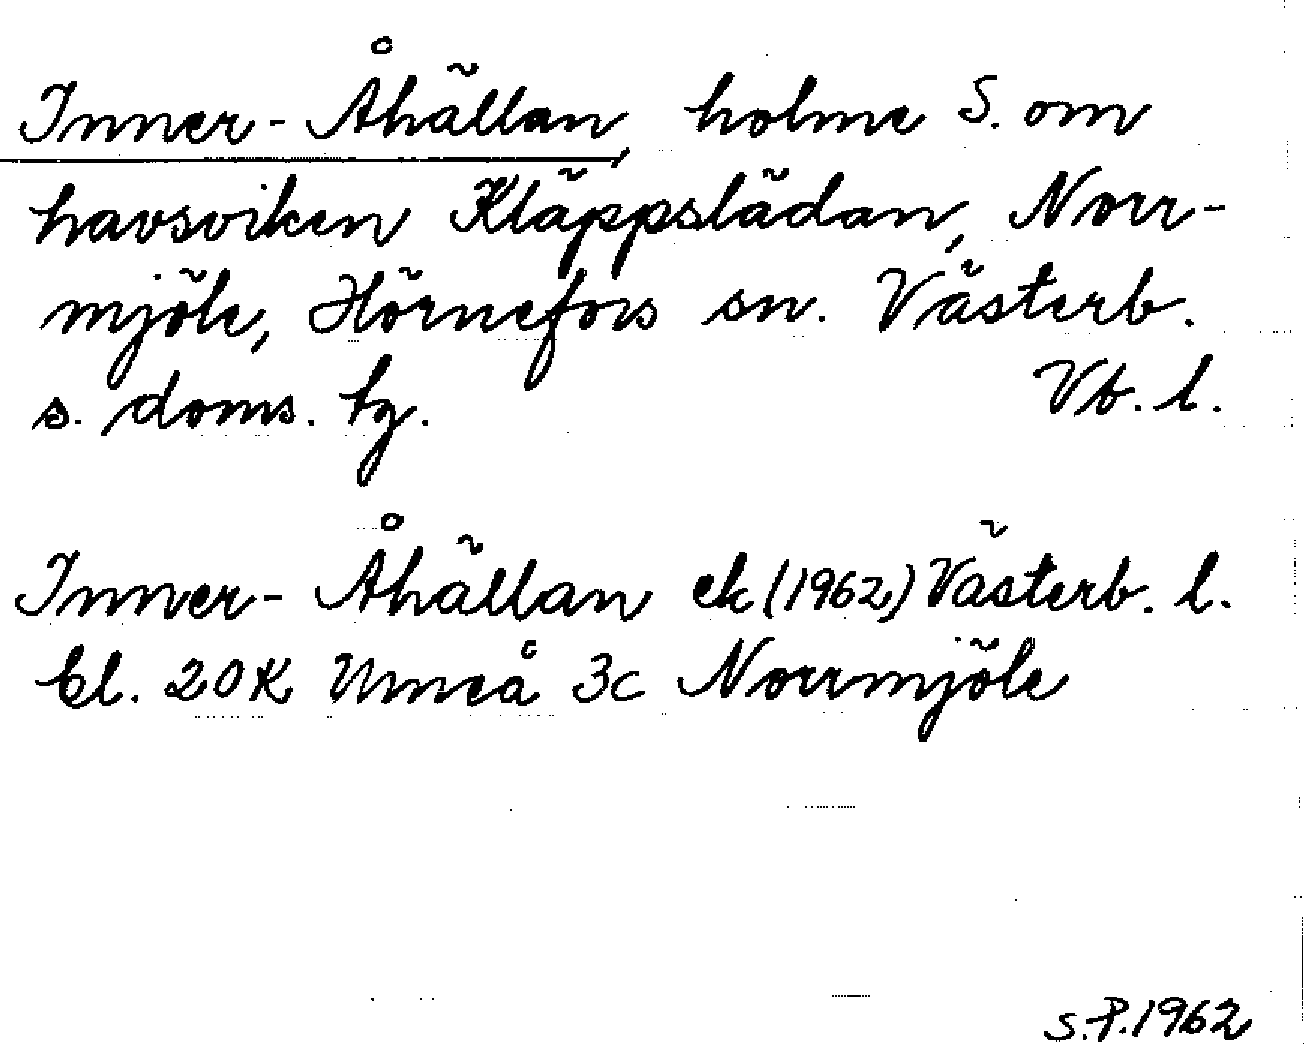 Inner-Åhällan, holme S. om
havsviken Kläppslädan, Norr-
mjöle, Hörnefors sn. Västerb.
s. doms. tg. Vb. l.
Inner-Åhällan ek (1962) Västerb. l.
bl. 20K Umeå 3c Norrmjöle
S.P. 1962